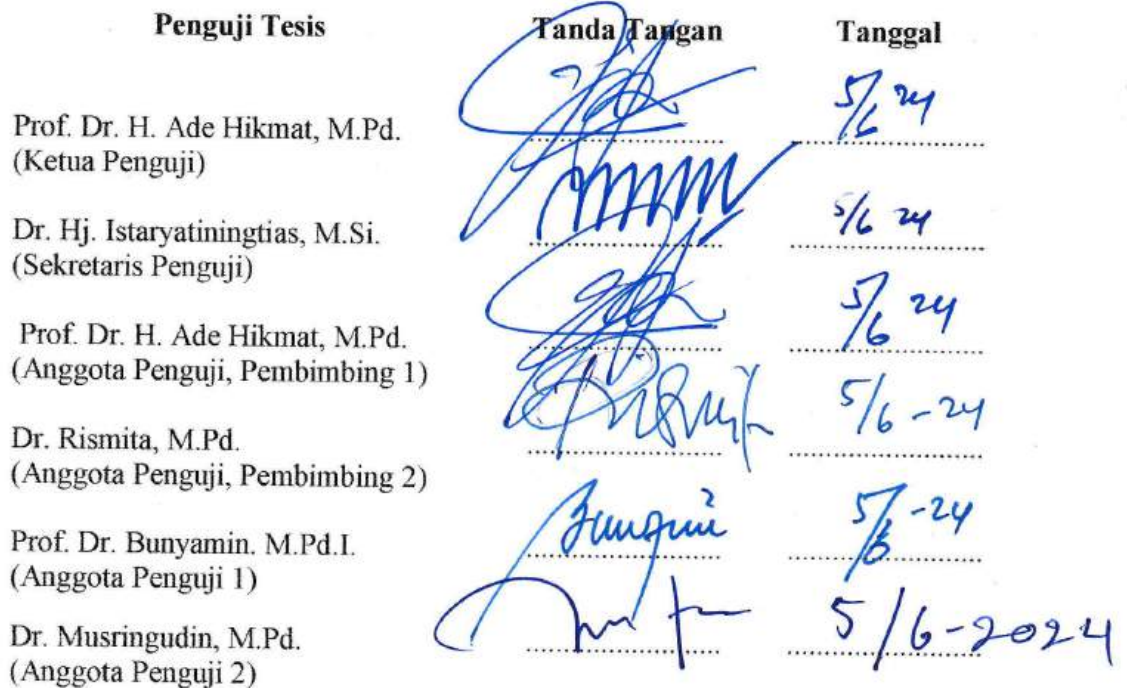 Penguji Tesis Tanda Tangan Tanggal
Prof. Dr. H. Ade Hikmat, M.Pd. 5/6 24
(Ketua Penguji)
Dr. Hj. Istaryatiningtias, M.Si. 5/6 24
(Sekretaris Penguji)
Prof. Dr. H. Ade Hikmat, M.Pd. 5/6 24
(Anggota Penguji, Pembimbing 1)
Dr. Rismita, M.Pd. 5/6 - 24
(Anggota Penguji, Pembimbing 2)
Prof. Dr. Bunyamin. M.Pd.I. 5/6 - 24
(Anggota Penguji 1)
Dr. Musringudin, M.Pd. 5/6-2024
(Anggota Penguji 2)